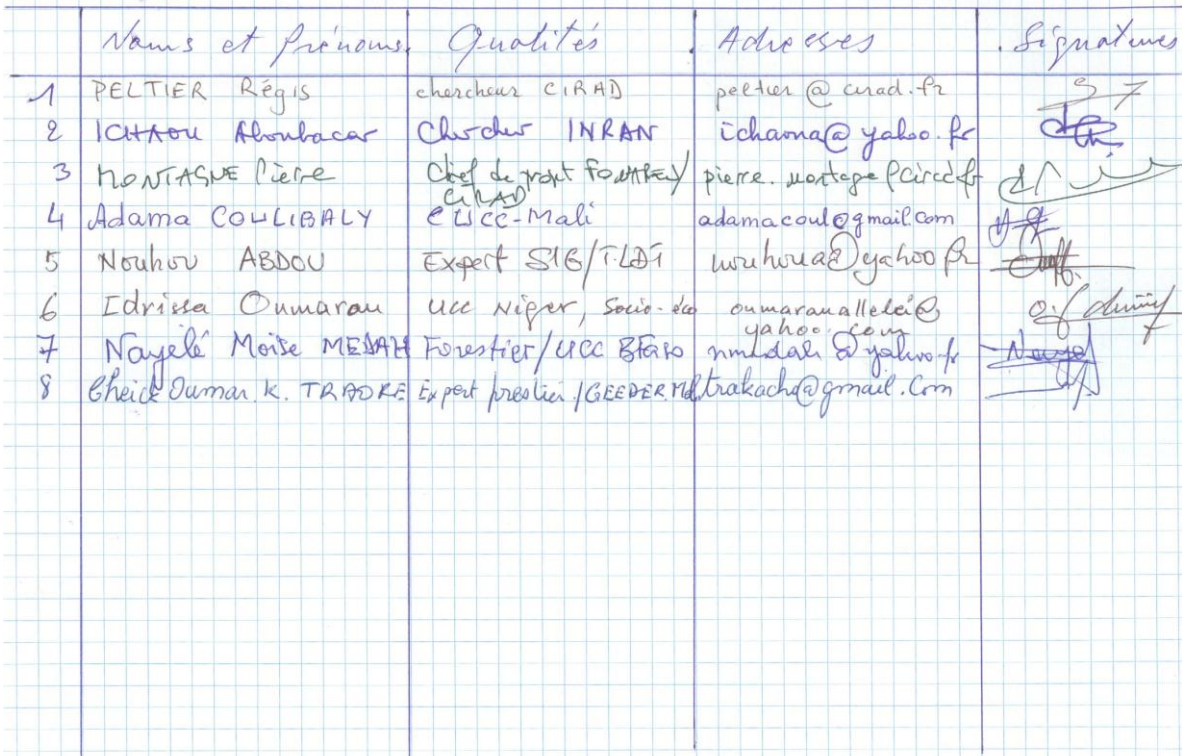 Noms et Prénoms Qualités Adresses Signatures
1 PELTIER Régis chercheur CIRAD peltier @ cirad.fr
2 ICHAOU Aboubacar Chercher INRAN ichaona@yahoo.fr
3 MONTAGNE Pierre Chef de projet FONABES/ pierre.montagne@cirad.fr
CIRAD
4 Adama COULIBALY CUCC-Mali adamacoul@gmail.com
5 Nouhou ABDOU Expert SIG/TLDT nouhoua@yahoo.fr
6 Idrissa Oumarou UCC Niger, Socio-éco oumaroualleleii@
yahoo.com
7 Nayélé Moïse MEDAH Forestier/UCC BFaso nmedah@yahoo.fr
8 Cheick Oumar. K. TRAORE Expert /GEEDER trakacho@gmail.Com